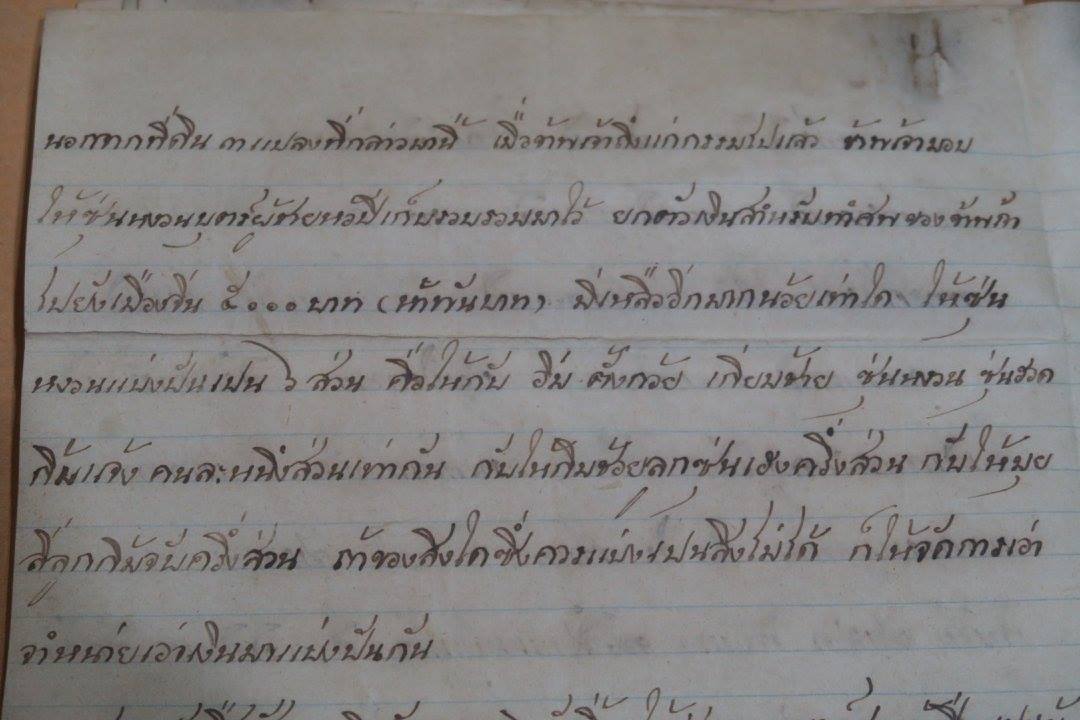 นอกจากที่ดิน ๓ แปลงที่กล่าวมานี้ เมื่อข้าพเจ้าถึงแก่กรรมไปแล้ว ข้าพเจ้ามอบ
ให้ซุ่นหงวนบุตร์ผู้ชายหวปีเก็บรวบรวมมาไว้ ยกตัวเงินสำหรับทำศพของข้าพเจ้า
ไปยังเมืองจีน ๕๐๐๐ บาท (ห้าพันบาท) มีเหลืออีกมากน้อยเท่าใด ให้ซุ่น
หงวนแบ่งปันเปน ๖ ส่วน คือให้กับ ฮุ่ย เกียมซ้าย ซุ่นหงวน ซุ่นฮวด
กิมแจ้ง คนละหนึ่งส่วนเท่ากัน กับให้กิมซ้วยลูกซุ่นเฮงครึ่งส่วน กับให้มุย
ลูกกิมจับครึ่งส่วน ถ้าของสิ่งใดซึ่งควรแบ่งเปนสิ่งไม่ได้ ก็ให้จัดการเอา
จำหน่ายเอาเงินมาแบ่งปันกัน